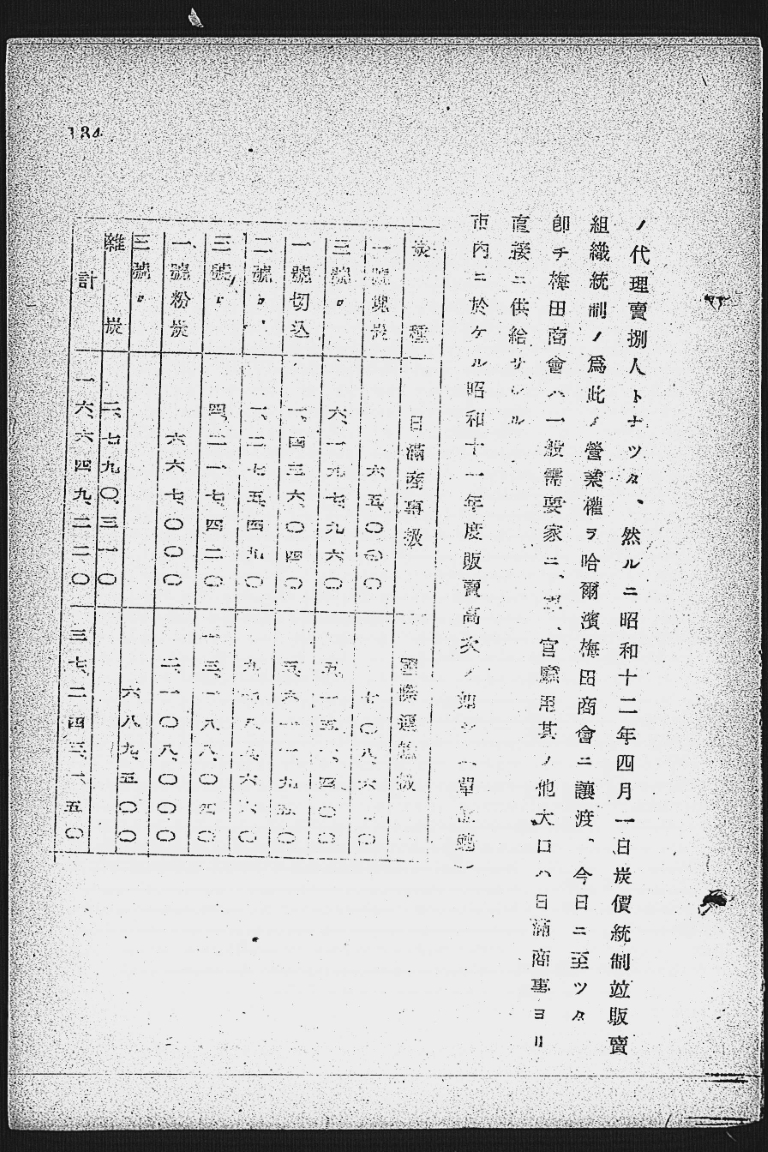 134
ノ代理賣捌人トナツタ、然ルニ昭和十二年四月一日炭價統制竝販賣
組織統制ノ爲此ノ營業權ヲ哈爾濱梅田商會ニ讓渡、今日ニ至ツタ
卽チ梅田商會ハ一般需要家ニ、官廳用其ノ他大口ハ日滿商事ヨリ
直接ニ供給サレル
市内ニ於ケル昭和十一年度販賣高次ノ如シ(單位瓲)
炭種 日滿商事扱 國際運輸扱
一號塊炭 六五〇〇〇
三號〃 六、一九七、九六〇
一號切込 一、四三六、〇四〇
二號〃 一、二七五、四九〇
三號〃 四、二一七、四二〇
一號粉炭 六六七、〇〇〇 二、一〇八、〇〇〇
三號〃 六八九、五〇〇
雜炭 二、七九〇、三一〇
計 一六、六四九、二二〇 三七、二四三、一五〇